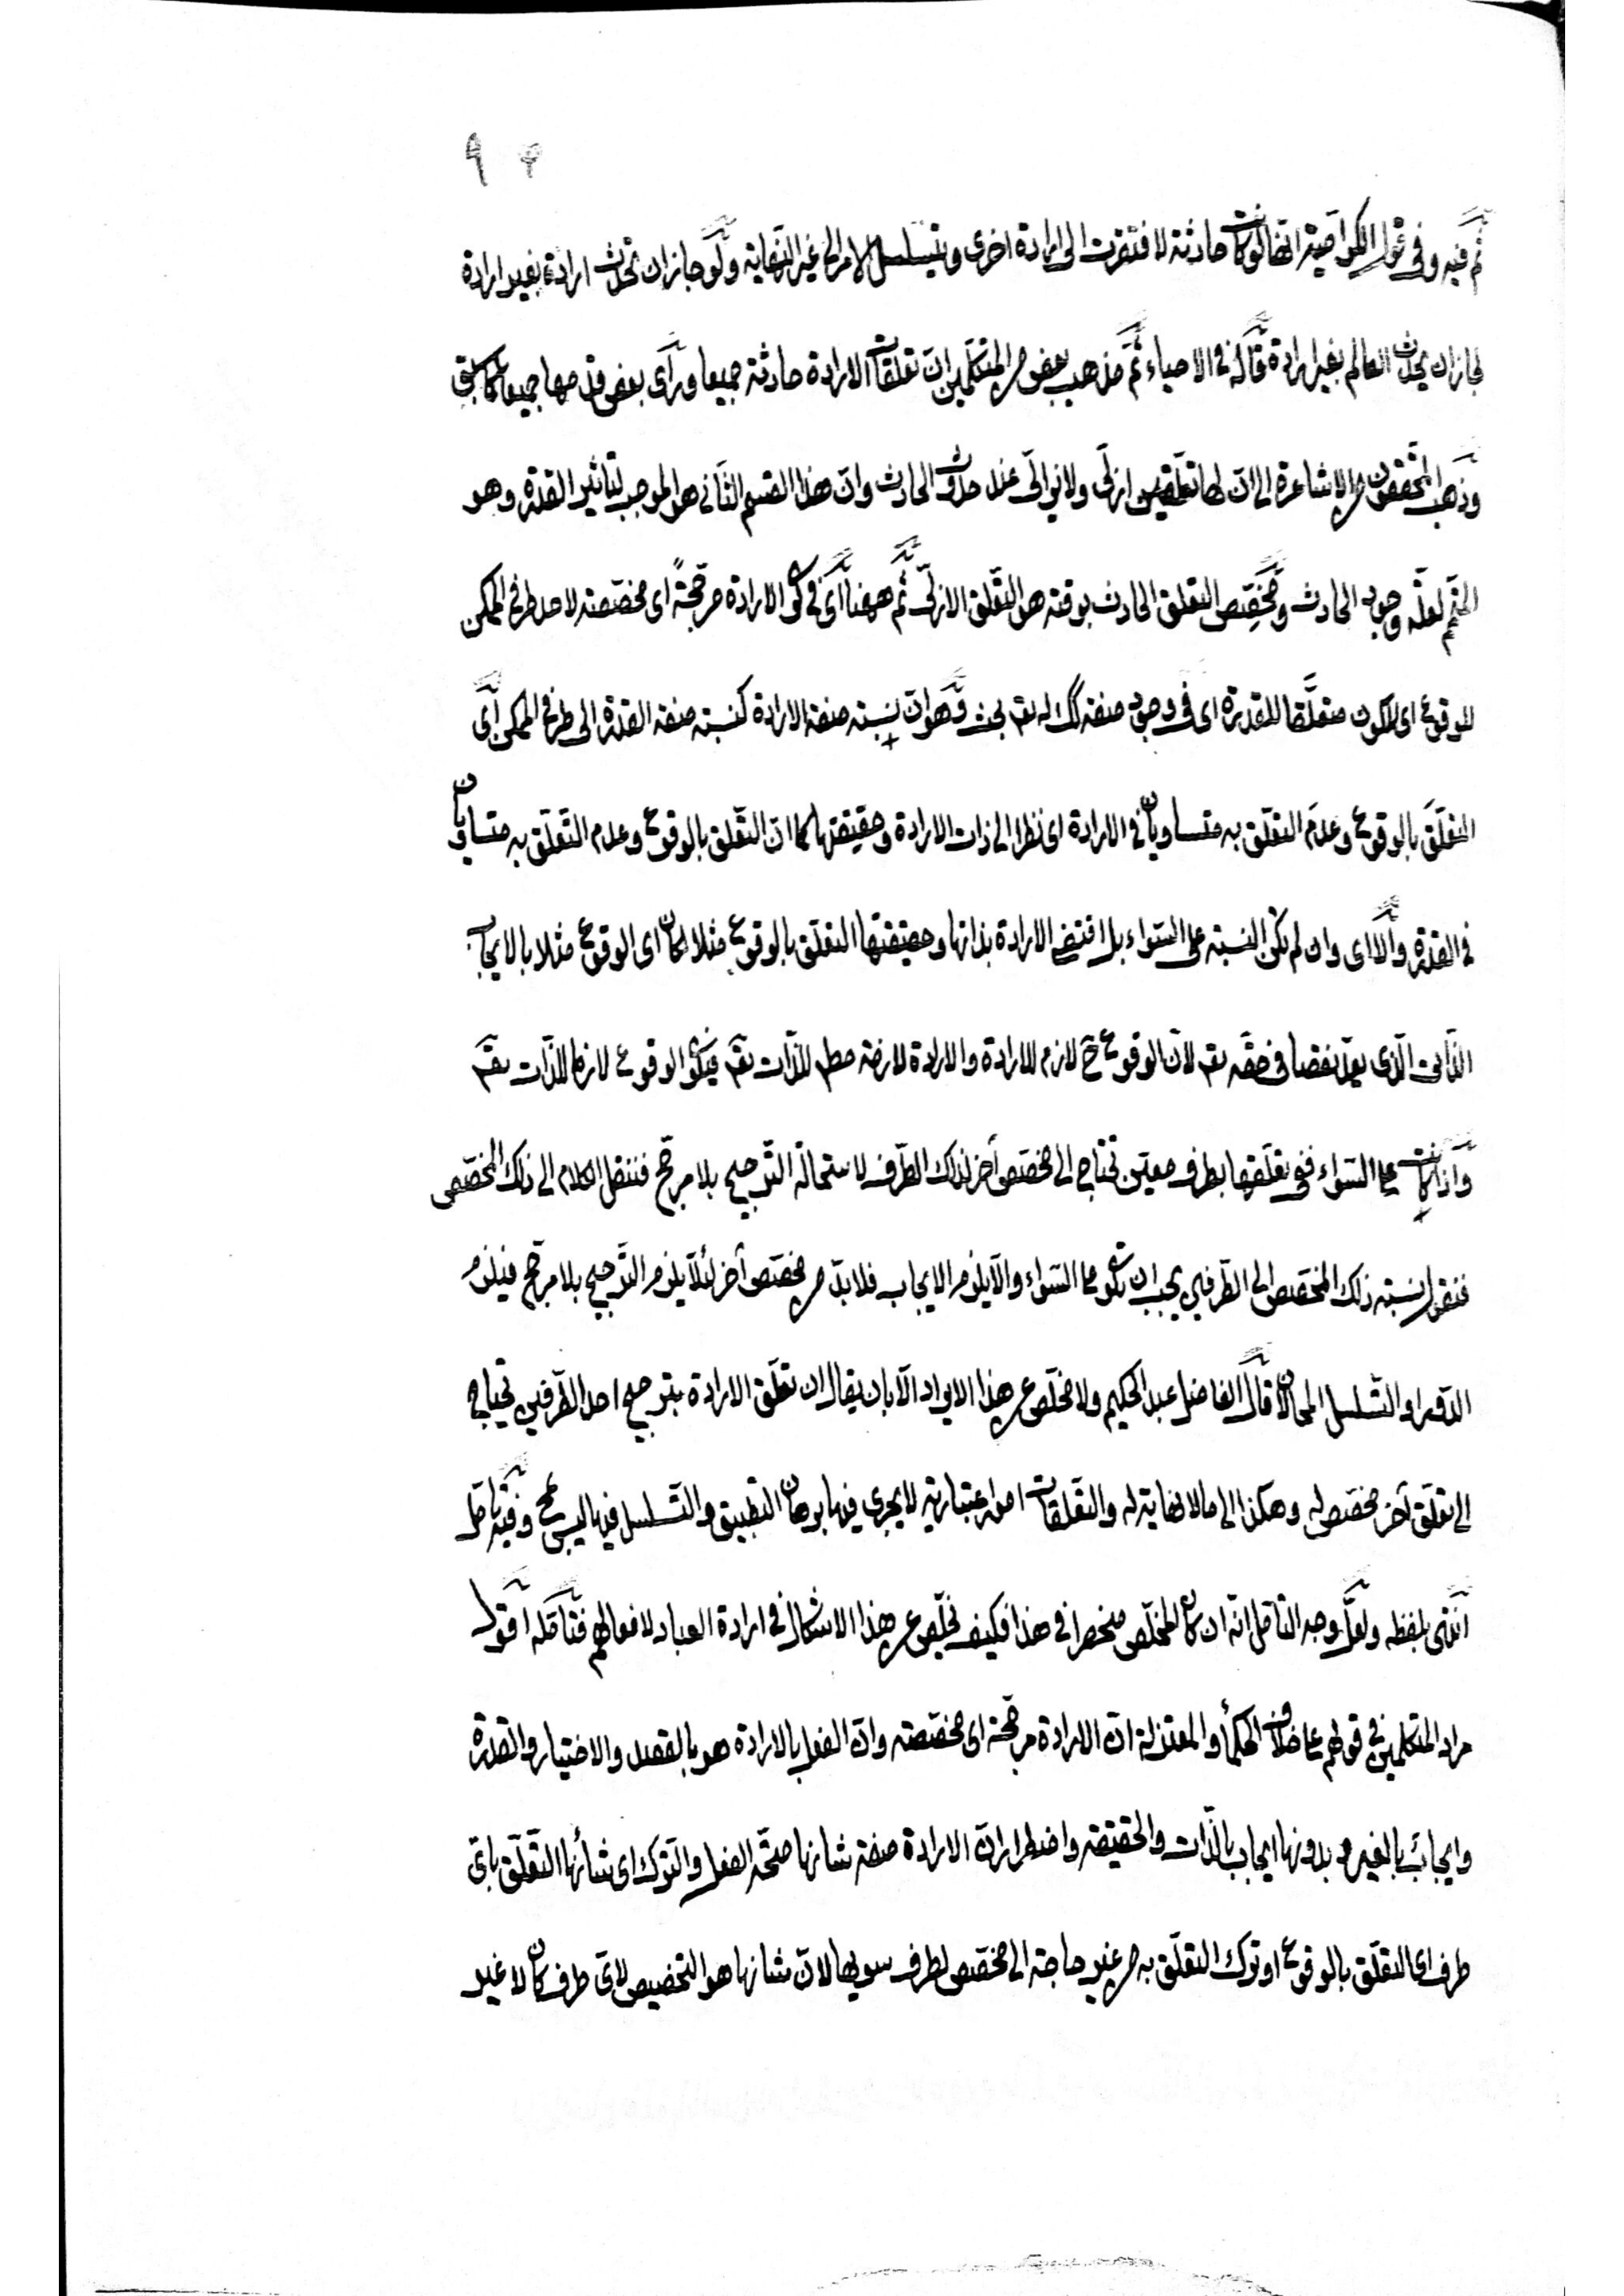 ٩ ٣
ثم فيه وفى قول الكرامية انها لو كانت حادثة لافتقرت الى ارادة اخرى ويتسلسل الامر الى غير النهاية ولو جاز ان تحدث ارادة بغير ارادة
لجاز ان يحدث العالم بغير ارادة قاله فى الاحياء ثم مذهب بعض من المتكلمين ان تعلقات الارادة حادثة جميعا ورأى بعض قدمها جميعا كما سبق
وذهب المحققون من الاشاعرة الى ان لها تعلقين ازلى ولايزالى عند حدوث الحادث وان هذا القسم الثانى هو الموجب لتاثير القدرة وهو
المتمم لعلة وجود الحادث ومخصص التعلق الحادث بوقته هو التعلق الازلى ثم ههنا اى فى كون الارادة مرجحة اى مخصصة لاحد طرفى الممكن
للوقوع اى لكون متعلقا للقدرة اى فى وجود صفة كك له تع بحث وهو ان نسبة صفة الارادة كنسبة صفة القدرة الى طرفى الممكن اى
التعلق بالوقوع وعدم التعلق به متساويان فى الارادة اى نظرا الى ذات الارادة وحقيقتها كما ان التعلق بالوقوع وعدم التعلق به متساويان
فى القدرة والا اى وان لم تكن النسبة على السواء بل اقتضى الارادة بذاتها وحقيقتها التعلق بالوقوع مثلا لكان اى الوقوع مثلا بالايجاب
الذاتى الذى يعد نقصا فى حقه تع لان الوقوع ح لازم للارادة والارادة لازمة مط للذات تع فيكون الوقوع لازما للذات تع
واذا كانت على السواء ففى تعلقها بطرف معين تحتاج الى مخصص آخر لذلك الطرف لاستحالة الترجيح بلا مرجح فننقل الكلام الى ذلك المخصص
فنقول نسبة ذلك المخصص الى الطرفين يجب ان تكون على السواء والا يلزم الايجاب فلا بد من مخصص آخر لئلا يلزم الترجيح بلا مرجح فيلزم
الدور او التسلسل المحالان قال الفاضل عبد الحكيم ولا مخلص عن هذا الايراد الا بان يقال ان تعلق الارادة بترجيح احد الطرفين تحتاج
الى تعلق آخر مخصص له وهكذا الى ما لا نهاية له والتعلقات امور اعتبارية لا يجرى فيها برهان التطبيق والتسلسل فيها ليس بمح وفيه تامل
انتهى بلفظه ولعل وجه التامل انه ان كان المخلص منحصرا فى هذا فكيف نخلص عن هذا الاشكال فى ارادة العباد لافعالهم فتأمله اقول
مراد المتكلمين فى قولهم على خلاف الحكماء والمعتزلة ان الارادة مرجحة اى مخصصة وان الفعل بالارادة هو بالقصد والاختيار والقدرة
وايجاب بالغير وبدونها ايجاب بالذات والحقيقة واضطرار ان الارادة صفة شانها صحة الفعل والترك اى شأنها التعلق باى
طرف اى التعلق بالوقوع او ترك التعلق به من غير حاجة الى مخصص لطرف سويها لان شانها هو التخصيص لاى طرف كان لا غير